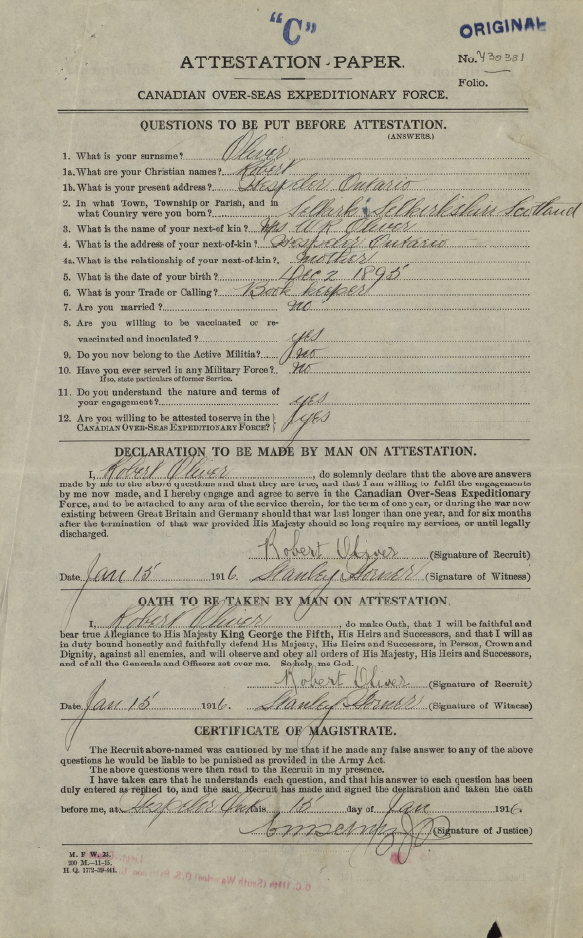 "C"
ORIGINAL
ATTESTATION-PAPER.
No.
Folio.
CANADIAN OVER-SEAS EXPEDITIONARY FORCE.
QUESTIONS TO BE PUT BEFORE ATTESTATION.
(ANSWERS.)
1. What is your surname? Oliver
1a. What are your Christian names? Robert
1b. What is your present address? Hespeler Ontario
2. In what Town, Township or Parish, and in
what Country were you born? Selkirk Selkirkshire Scotland
3. What is the name of your next-of kin? Mrs W R Oliver
4. What is the address of your next-of-kin? Hespeler Ontario
4a. What is the relationship of your next-of-kin? mother
5. What is the date of your birth? Dec 2 1895
6. What is your Trade or Calling? Book keeper
7. Are you married? no
8. Are you willing to be vaccinated or re-
vaccinated and inoculated? yes
9. Do you now belong to the Active Militia? no
10. Have you ever served in any Military Force? no
If so, state particulars of former Service.
11. Do you understand the nature and terms of
your engagement? yes
12. Are you willing to be attested to serve in the
CANADIAN OVER-SEAS EXPEDITIONARY FORCE? yes
DECLARATION TO BE MADE BY MAN ON ATTESTATION.
I, Robert Oliver, do solemnly declare that the above are answers
made by me to the above questions and that they are true, and that I am willing to fulfil the engagements
by me now made, and I hereby engage and agree to serve in the Canadian Over-Seas Expeditionary
Force, and to be attached to any arm of the service therein, for the term of one year, or during the war now
existing between Great Britain and Germany should that war last longer than one year, and for six months
after the termination of that war provided His Majesty should so long require my services, or until legally
discharged.
Robert Oliver (Signature of Recruit)
Date Jan 15 1916. Stanley (Signature of Witness)
OATH TO BE TAKEN BY MAN ON ATTESTATION.
I, Robert Oliver, do make Oath, that I will be faithful and
bear true Allegiance to His Majesty King George the Fifth, His Heirs and Successors, and that I will as
in duty bound honestly and faithfully defend His Majesty, His Heirs and Successors, in Person, Crown and
Dignity, against all enemies, and will observe and obey all orders of His Majesty, His Heirs and Successors,
and of all the Generals and Officers set over me. So help me God.
Robert Oliver (Signature of Recruit)
Date Jan 15 1916. Stanley (Signature of Witness)
CERTIFICATE OF MAGISTRATE.
The Recruit above-named was cautioned by me that if he made any false answer to any of the above
questions he would be liable to be punished as provided in the Army Act.
The above questions were then read to the Recruit in my presence.
I have taken care that he understands each question, and that his answer to each question has been
duly entered as replied to, and the said Recruit has made and signed the declaration and taken the oath
before me, at Hespeler Ont this 15 day of Jan 1916
(Signature of Justice)
M. F. W. 23.
200 M.-11-15.
H. Q. 1772-39-841.